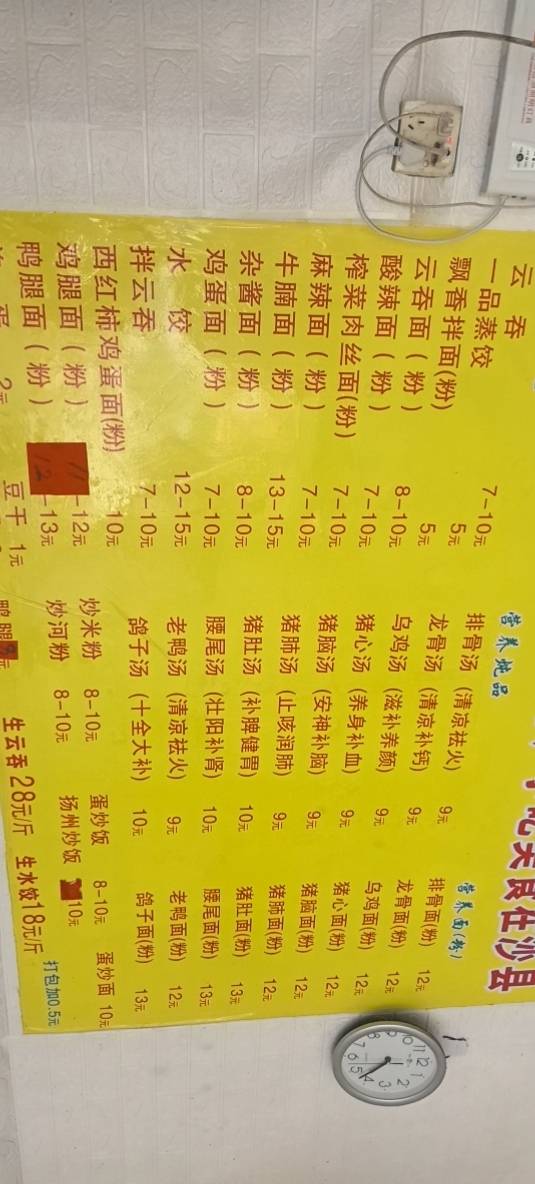 吃美食在沙县
云吞 7-10元
一品蒸饺 5元
飘香拌面(粉) 5元
云吞面(粉) 8-10元
酸辣面(粉) 7-10元
榨菜肉丝面(粉) 7-10元
麻辣面(粉) 7-10元
牛腩面(粉) 13-15元
杂酱面(粉) 8-10元
鸡蛋面(粉) 7-10元
水饺 12-15元
拌云吞 7-10元
西红柿鸡蛋面(粉) 10元
鸡腿面(粉) 11-12元
鸭腿面(粉) 12-13元
营养炖品
排骨汤(清凉祛火) 9元
龙骨汤(清凉补钙) 9元
乌鸡汤(滋补养颜) 9元
猪心汤(养身补血) 9元
猪脑汤(安神补脑) 9元
猪肺汤(止咳润肺) 9元
猪肚汤(补脾健胃) 10元
腰尾汤(壮阳补肾) 10元
老鸭汤(清凉祛火) 9元
鸽子汤(十全大补) 10元
营养面(粉)
排骨面(粉) 12元
龙骨面(粉) 12元
乌鸡面(粉) 12元
猪心面(粉) 12元
猪脑面(粉) 12元
猪肺面(粉) 12元
猪肚面(粉) 13元
腰尾面(粉) 13元
老鸭面(粉) 12元
鸽子面(粉) 13元
炒米粉 8-10元 蛋炒饭 8-10元 蛋炒面 10元
炒河粉 8-10元 扬州炒饭 10元
2元 豆干 1元 鸭腿 元 生云吞 28元/斤 生水饺18元/斤 打包加0.5元
12 1 2 3 4 5 6 7 8 9 10 11